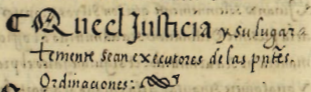 Que el Justicia y su lugar a
temiente sean executores de las pntes.
Ordinaciones: